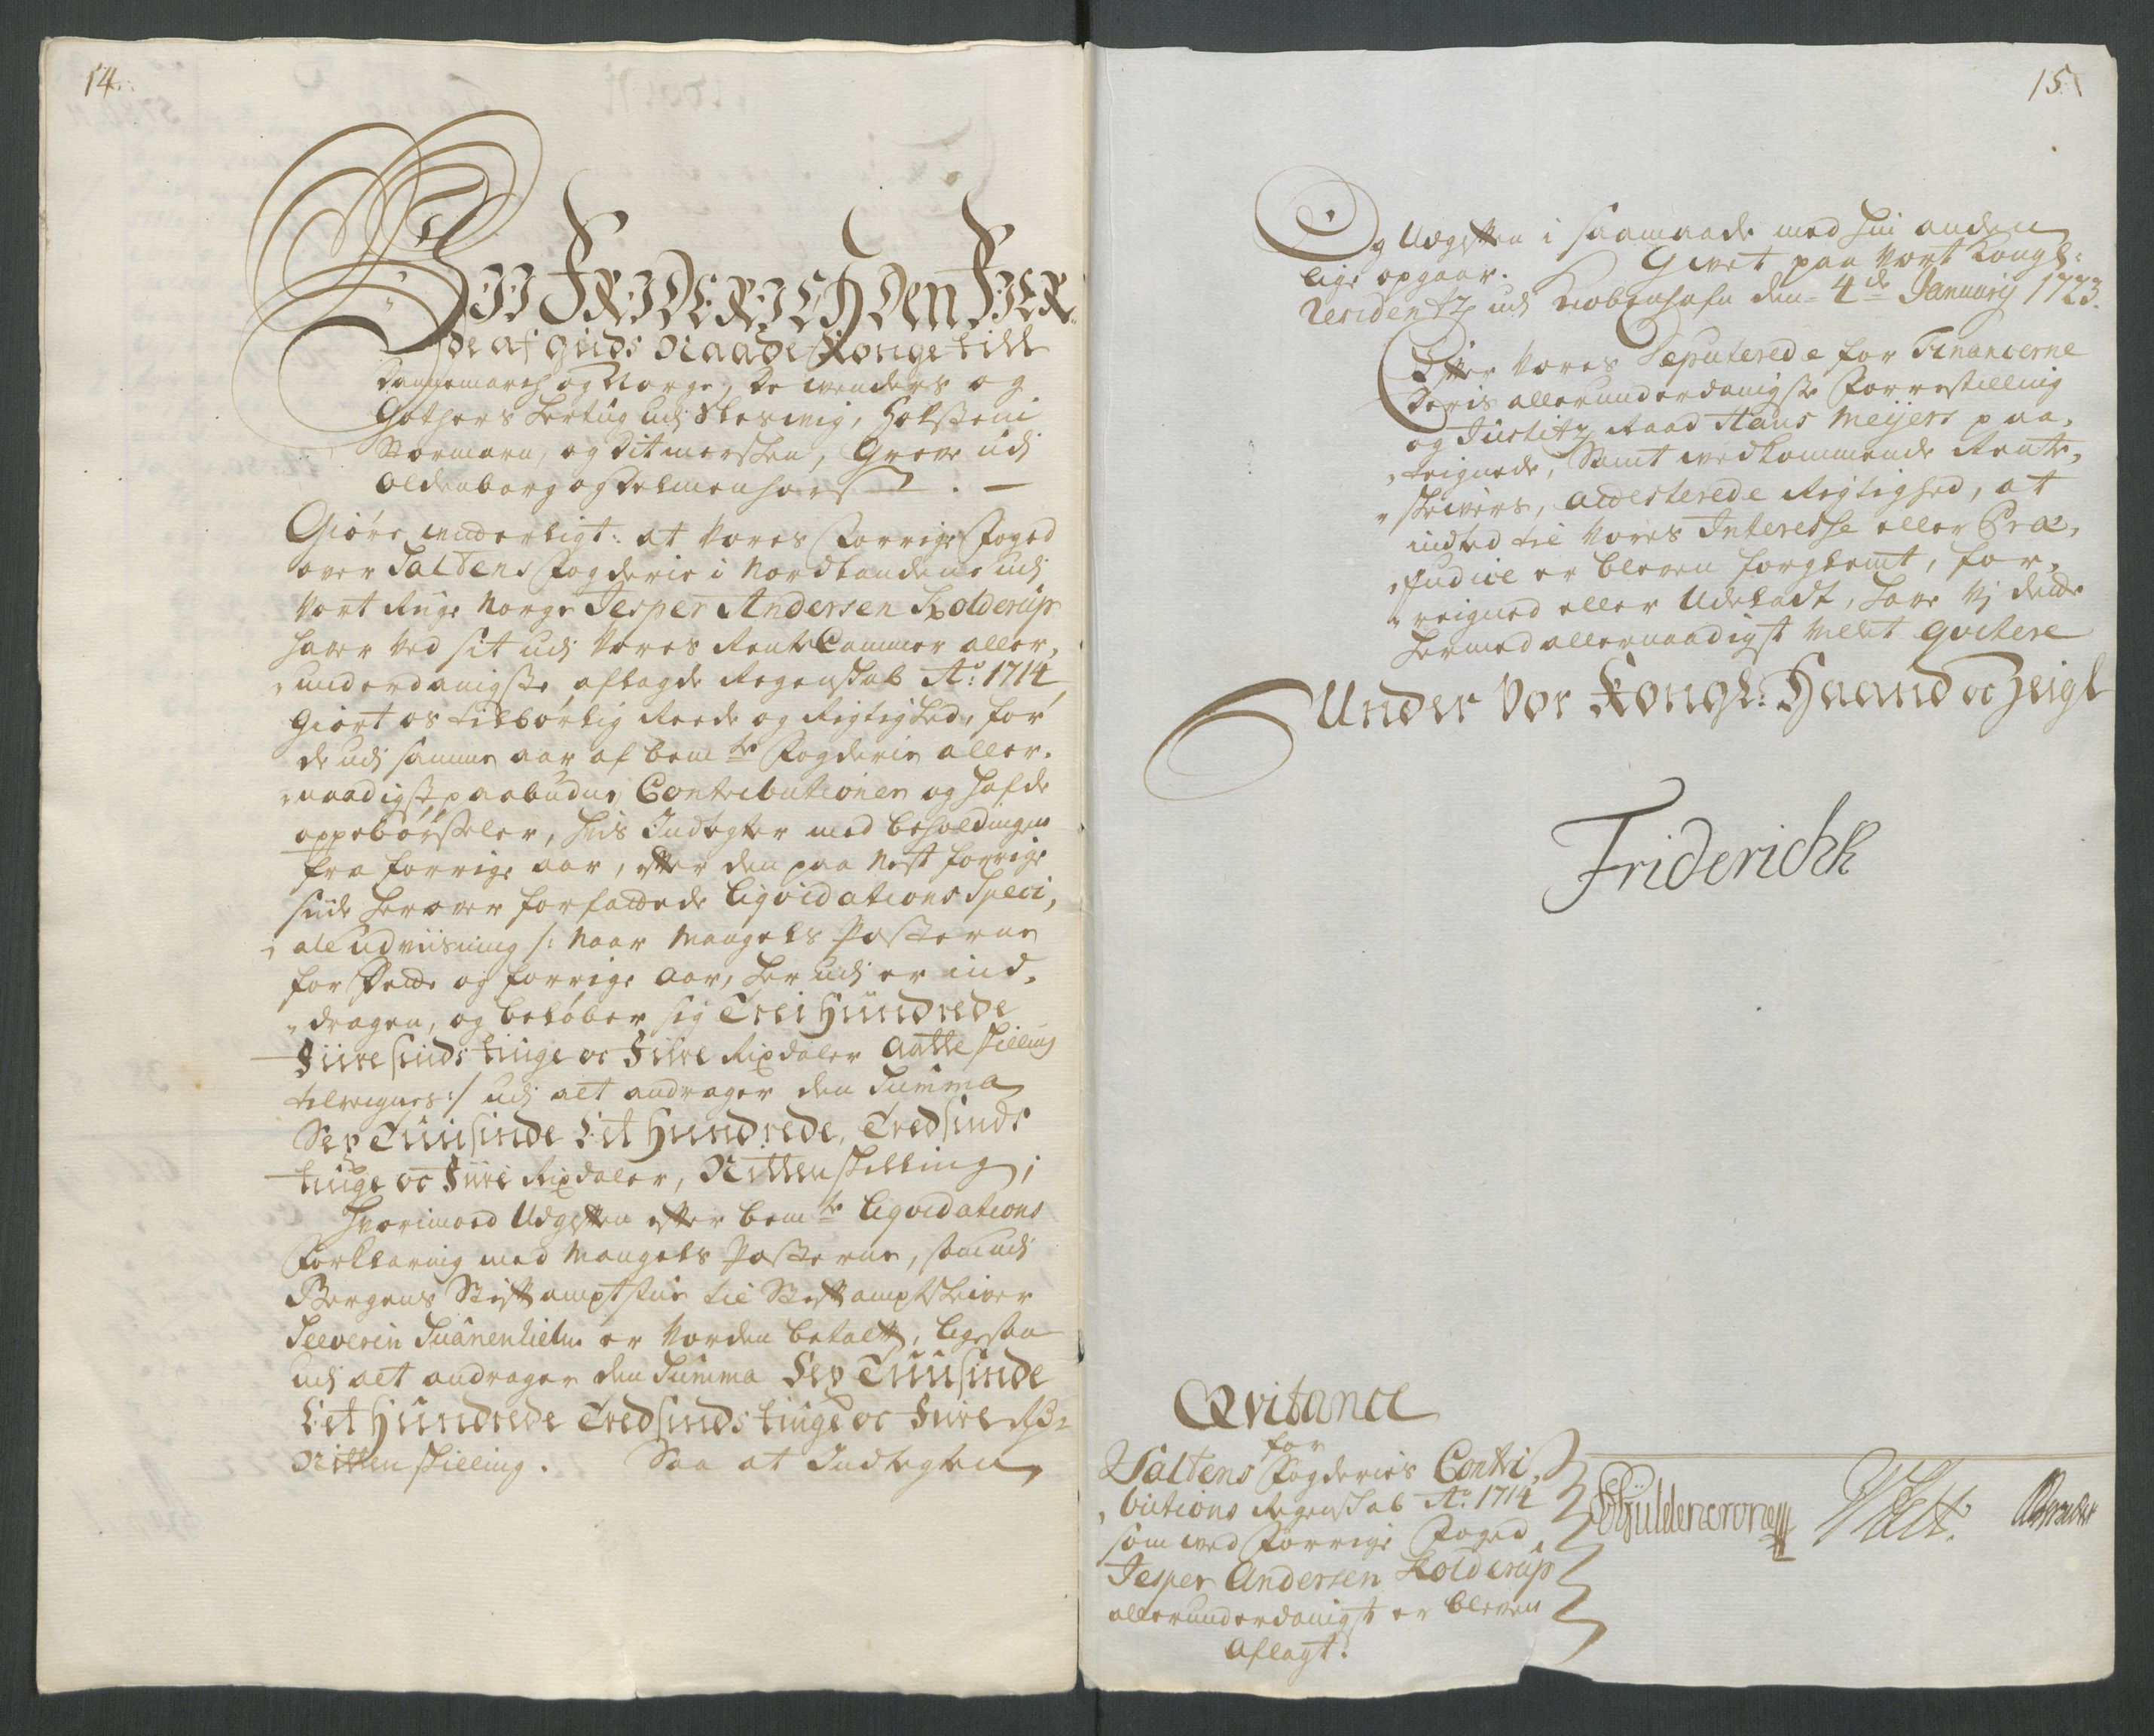 14.
Vii Friderich den Fier-
de af Guds Naade Konge till
Dannemarch og Norge, De Wenders og
Gothers Hertug udj Sleswig, Holsteen
Stormarn, og Ditmersken, Greve udj
Oldenborg og Delmenhorst. —
Giøre witterligt: at Vores Forrige Foged
over Saltens Fogderie i Nordlandene udj
Vort Rige Norge Jesper Andersen Kolderup
haver Ved sit udj Vores Rente Cammer aller-
underdanigste aflagde Regenskab Ao: 1714
Giort os tilbørlig Reede og Rigtighed, for
de udj samme aar af bemte Fogderie aller-
naadigst paabudne Contributioner og hafde
oppebørseler, hvis Indtegter med beholdningen
fra forrige aar, efter den paa Nest forrige
side herover forfattede Liqvidations Speci,
ale udviisning /: Naar Mangels Posterne
for dette og forrige aar, her udj er ind-
dragen, og beløber sig Trei Hundrede
Fiiresinds tiuge oc Fiire Rixdaler Aatte skilling
tilreignes :/ udj alt andrager den Summa
Sex Tuusinde Eet Hundrede, Tredsinds
tiuge oc Fiire Rixdaler, Nitten skilling;
Hvorimoed Udgiften efter bemte Liqvidations
Forklaring med Mangels Posterne, som udj
Bergens Stiftamptstue til Stiftamptskriver
Severin Suanenhielm er Vorden betalt, ligesaa
udj alt andrager den Summa Sex Tuusinde
Eet Hundrede Tredsinds tiuge oc Fiire Rd:
Nitten skilling. Saa at Indtegten
15
Og Udgiften i saamaade med hin anden
lige opgaar. Givet paa Vort Kongl:
Residentz udj Kiøbenhafn den 4de Januarij 1723.
Efter Vores Deputerede for Financerne
deris allerunderdanigste Forrestilling
og Justitz Raad Hans Meijers paa-
teignede, Samt wedkommende Rente-
skrivers, attesterede Rigtighed, at
indted til Vores Interesse eller Præ-
judice er bleven forglemt, for-
reigned eller Udeladt, have Vj dette
hermed allernaadigst Villet qvitere
Under Vor Kongl: Haand oc Zeigl
Friderich R
Qvitance
for
Saltens Fogderies Contri-
butions Regenskab Ao: 1714
som ved Forrige Foged
Jesper Andersen Kolderup
allerunderdanigst er bleven
Aflagt.
Güldencrone